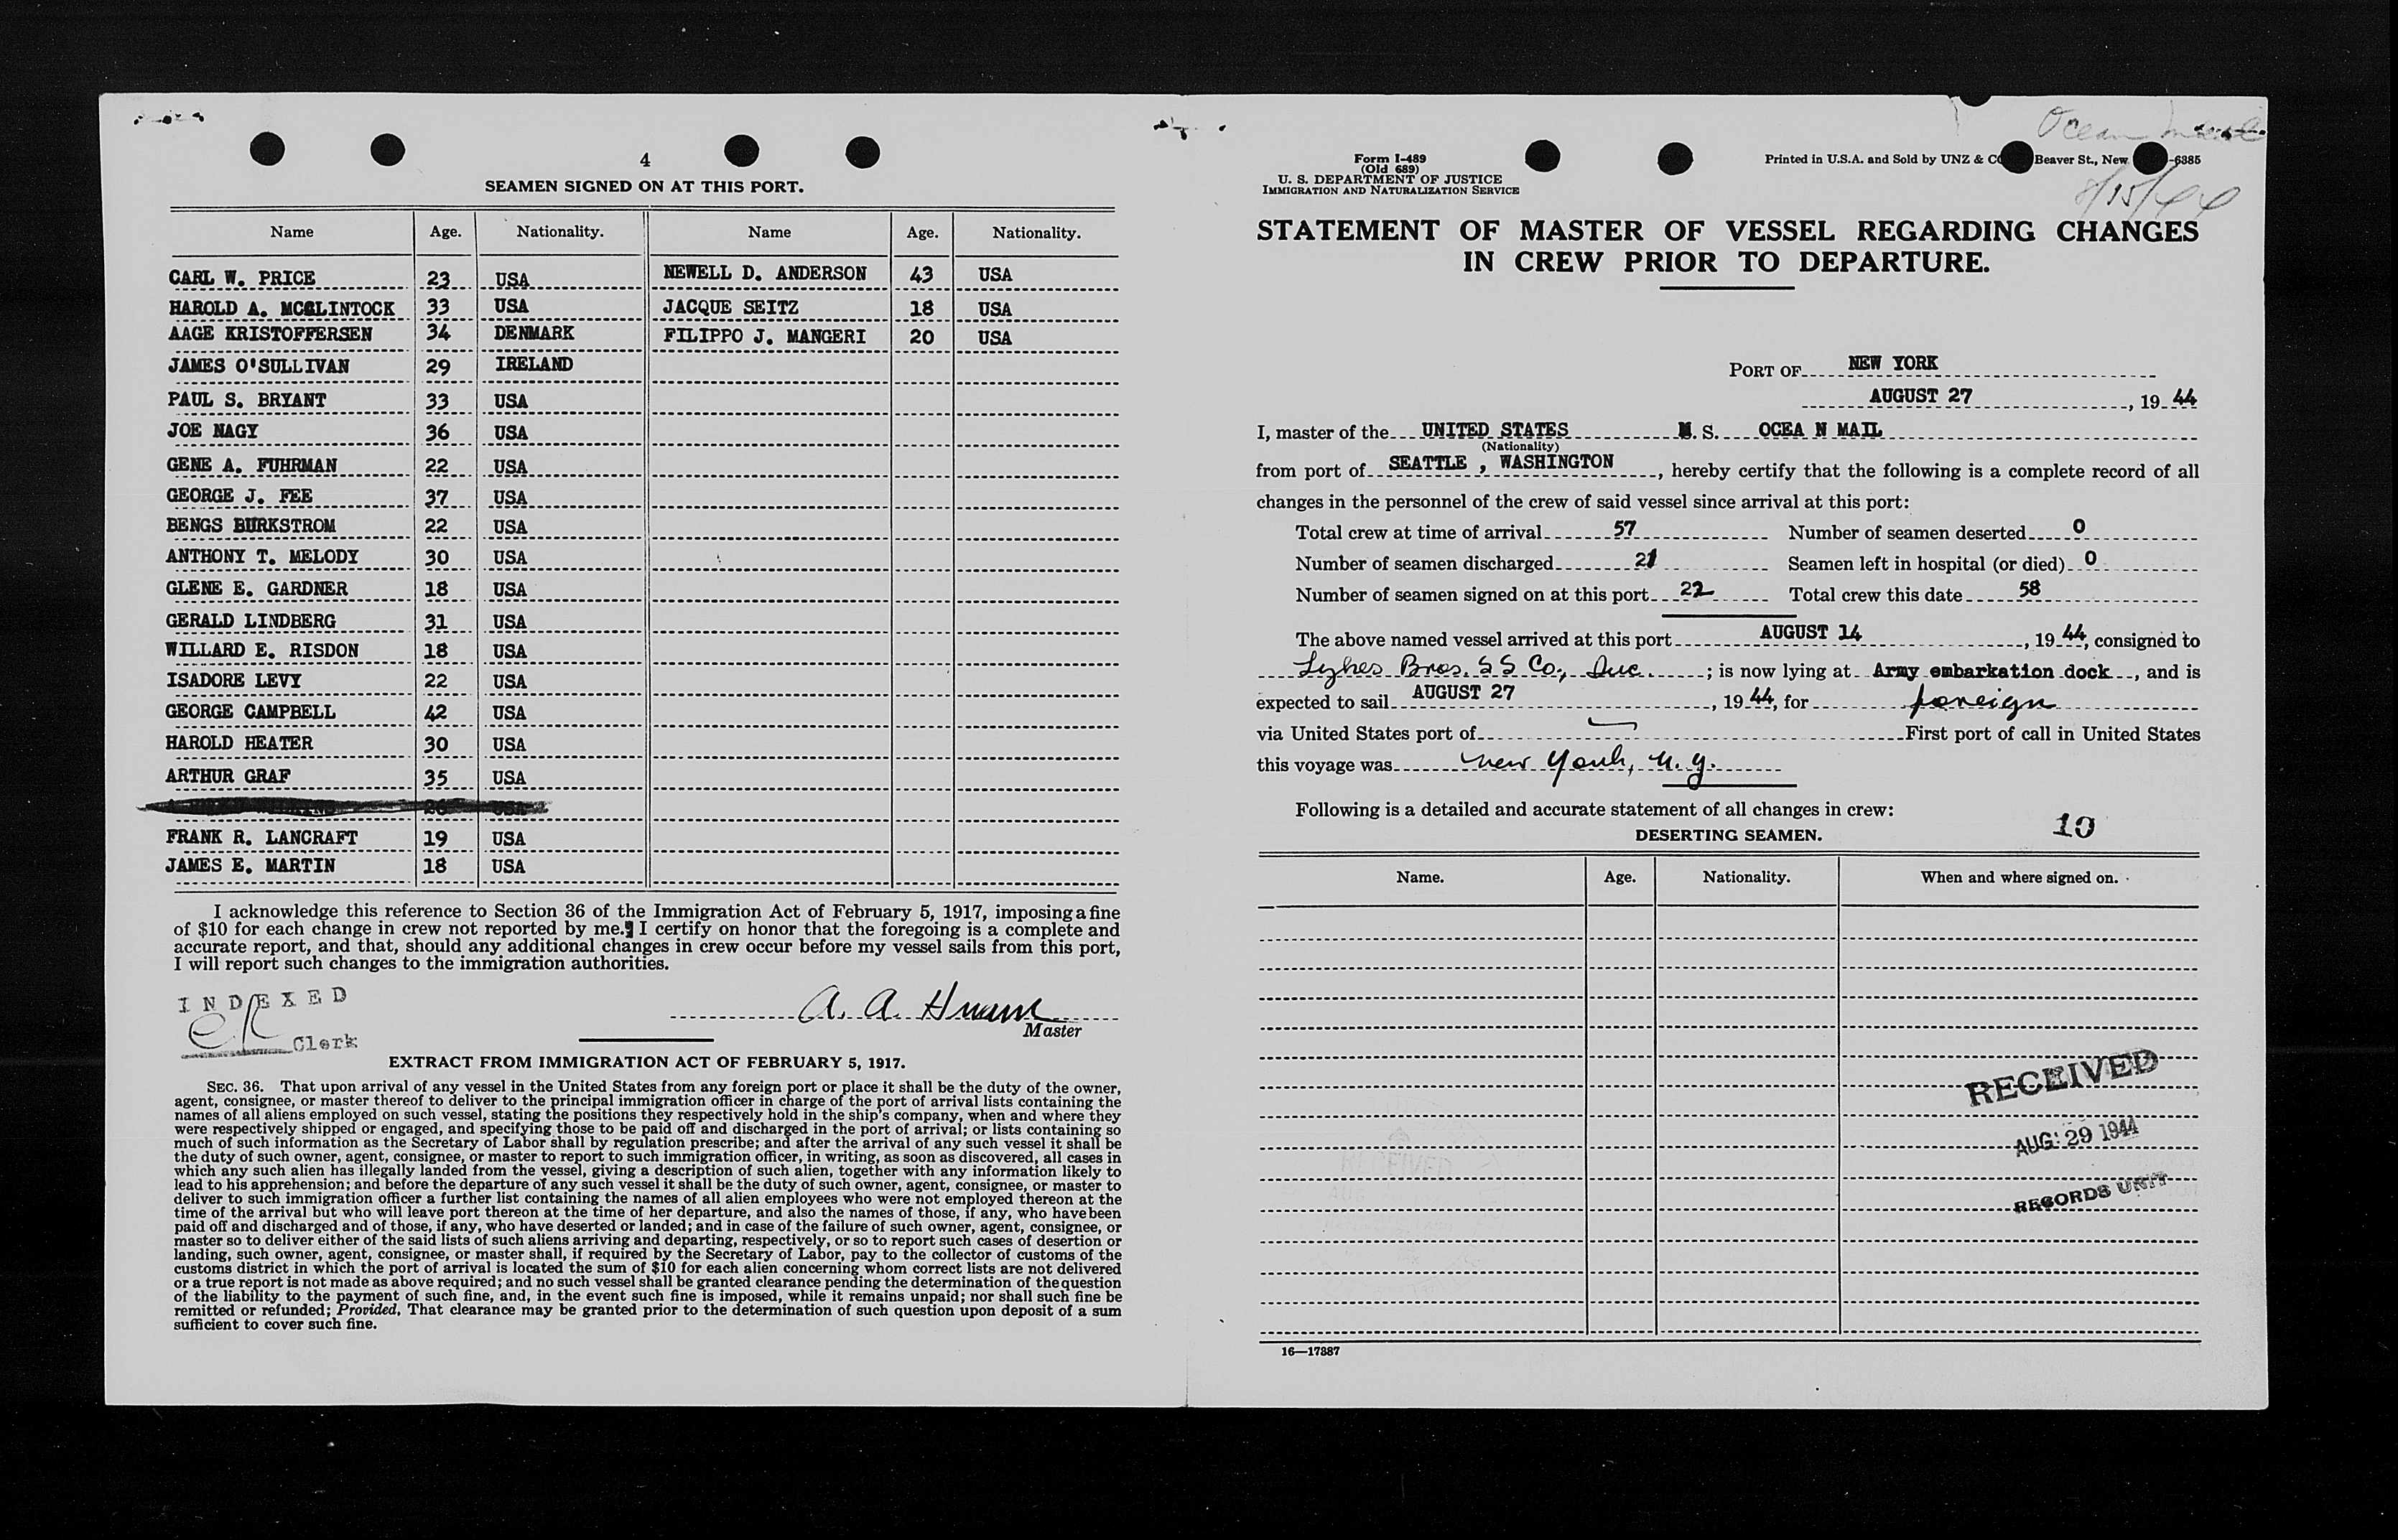 4
SEAMEN SIGNED ON AT THIS PORT.
Name Age. Nationality. Name Age. Nationality.
CARL W. PRICE 23 USA NEWELL D. ANDERSON 43 USA
HAROLD A. MCCLINTOCK 33 USA JACQUE SEITZ 18 USA
AAGE KRISTOFFERSEN 34 DENMARK FILIPPO J. MANGERI 20 USA
JAMES O'SULLIVAN 29 IRELAND
PAUL S. BRYANT 33 USA
JOE NAGY 36 USA
GENE A. FUHRMAN 22 USA
GEORGE J. FEE 37 USA
BENGS BURKSTROM 22 USA
ANTHONY T. MELODY 30 USA
GLENE E. GARDNER 18 USA
GERALD LINDBERG 31 USA
WILLARD E. RISDON 18 USA
ISADORE LEVY 22 USA
GEORGE CAMPBELL 42 USA
HAROLD HEATER 30 USA
ARTHUR GRAF 35 USA
26 USA
FRANK R. LANCRAFT 19 USA
JAMES E. MARTIN 18 USA
I acknowledge this reference to Section 36 of the Immigration Act of February 5, 1917, imposing a fine
of $10 for each change in crew not reported by me. I certify on honor that the foregoing is a complete and
accurate report, and that, should any additional changes in crew occur before my vessel sails from this port,
I will report such changes to the immigration authorities.
INDEXED
Clerk
A. A.
Master
EXTRACT FROM IMMIGRATION ACT OF FEBRUARY 5, 1917.
SEC. 36. That upon arrival of any vessel in the United States from any foreign port or place it shall be the duty of the owner,
agent, consignee, or master thereof to deliver to the principal immigration officer in charge of the port of arrival lists containing the
names of all aliens employed on such vessel, stating the positions they respectively hold in the ship's company, when and where they
were respectively shipped or engaged, and specifying those to be paid off and discharged in the port of arrival; or lists containing so
much of such information as the Secretary of Labor shall by regulation prescribe; and after the arrival of any such vessel it shall be
the duty of such owner, agent, consignee, or master to report to such immigration officer, in writing, as soon as discovered, all cases in
which any such alien has illegally landed from the vessel, giving a description of such alien, together with any information likely to
lead to his apprehension; and before the departure of any such vessel it shall be the duty of such owner, agent, consignee, or master to
deliver to such immigration officer a further list containing the names of all alien employees who were not employed thereon at the
time of the arrival but who will leave port thereon at the time of her departure, and also the names of those, if any, who have been
paid off and discharged and of those, if any, who have deserted or landed; and in case of the failure of such owner, agent, consignee, or
master so to deliver either of the said lists of such aliens arriving and departing, respectively, or so to report such cases of desertion or
landing, such owner, agent, consignee, or master shall, if required by the Secretary of Labor, pay to the collector of customs of the
customs district in which the port of arrival is located the sum of $10 for each alien concerning whom correct lists are not delivered
or a true report is not made as above required; and no such vessel shall be granted clearance pending the determination of the question
of the liability to the payment of such fine, and, in the event such fine is imposed, while it remains unpaid; nor shall such fine be
remitted or refunded; Provided, That clearance may be granted prior to the determination of such question upon deposit of a sum
sufficient to cover such fine.
Ocean
Form I-489
(Old 689)
U. S. DEPARTMENT OF JUSTICE
IMMIGRATION AND NATURALIZATION SERVICE
Printed in U.S.A. and Sold by UNZ & Beaver St., New -6385
8/15/44
STATEMENT OF MASTER OF VESSEL REGARDING CHANGES
IN CREW PRIOR TO DEPARTURE.
PORT OF NEW YORK
AUGUST 27, 19 44
I, master of the UNITED STATES M. S. OCEA N MAIL
(Nationality)
from port of SEATTLE , WASHINGTON, hereby certify that the following is a complete record of all
changes in the personnel of the crew of said vessel since arrival at this port:
Total crew at time of arrival 57 Number of seamen deserted 0
Number of seamen discharged 21 Seamen left in hospital (or died) 0
Number of seamen signed on at this port 22 Total crew this date 58
The above named vessel arrived at this port AUGUST 14, 19 44, consigned to
Lykes Bros. S S Co., Inc.; is now lying at Army embarkation dock, and is
expected to sail AUGUST 27, 19 44, for foreign
via United States port of First port of call in United States
this voyage was New York, N. Y.
Following is a detailed and accurate statement of all changes in crew:
10
DESERTING SEAMEN.
Name. Age. Nationality. When and where signed on.
RECEIVED
AUG 29 1944
RECORDS UNIT
16—17887